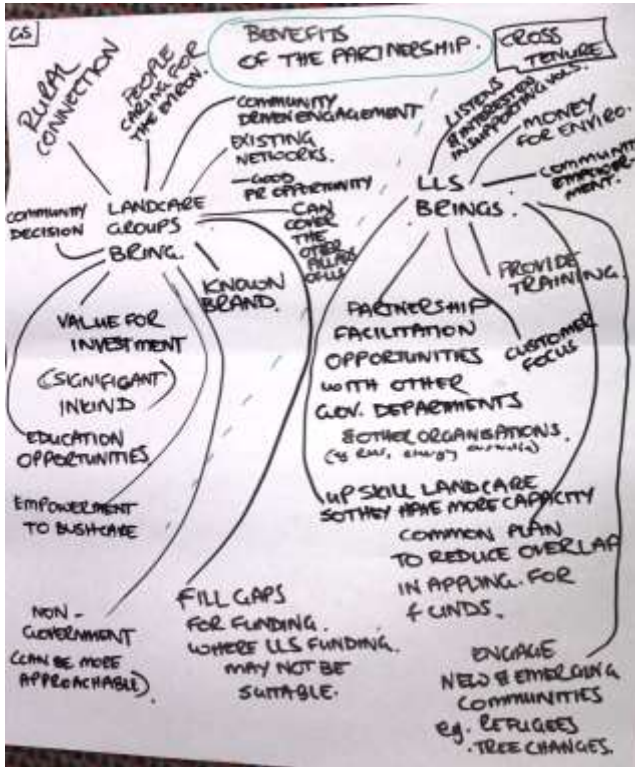 GS
BENEFITS
OF THE PARTNERSHIP.
CROSS
TENURE
RURAL
CONNECTION
PEOPLE
CARING FOR
THE ENVIRON.
COMMUNITY
DRIVEN ENGAGEMENT
EXISTING
NETWORKS.
GOOD
PR OPPORTUNITY
CAN
COVER
THE
OTHER
PILLARS
OF LLS
COMMUNITY
DECISION
LANDCARE
GROUPS
BRING.
KNOWN
BRAND.
VALUE FOR
INVESTMENT
(SIGNIFIGANT)
INKIND
EDUCATION
OPPORTUNITIES.
EMPOWERMENT
TO BUSHCARE
NON-
GOVERNMENT
(CAN BE MORE
APPROACHABLE)
FILL GAPS
FOR FUNDING.
WHERE LLS FUNDING.
MAY NOT BE
SUITABLE.
LLS
BRINGS.
LISTENS
& INTERESTED
IN SUPPORTING VOLS.
MONEY
FOR ENVIRO.
COMMUNITY
EMPOWER-
MENT.
PROVIDE
TRAINING.
CUSTOMER
FOCUS
PARTNERSHIP
FACILITATION
OPPORTUNITIES
WITH OTHER
GOV. DEPARTMENTS
& OTHER ORGANISATIONS.
UPSKILL LANDCARE
SO THEY HAVE MORE CAPACITY
COMMON PLAN
TO REDUCE OVERLAP
IN APPLYING. FOR
FUNDS.
ENGAGE
NEW & EMERGING
COMMUNITIES
eg. REFUGEES
. TREE CHANGES.